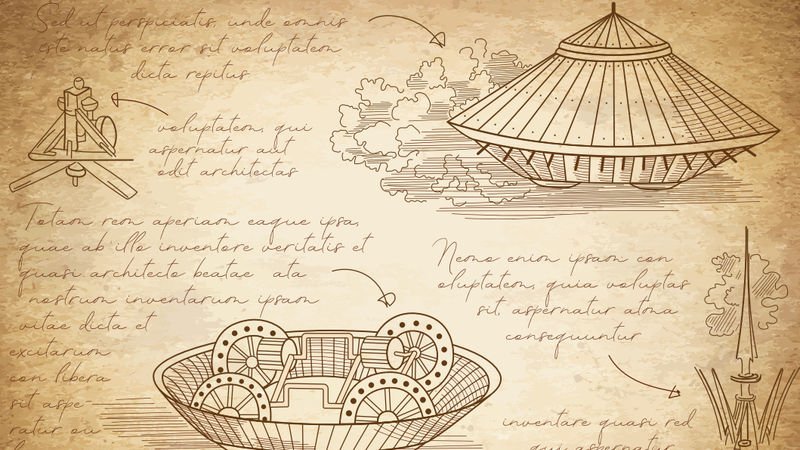 Sed ut perspiciatis, unde omnis
iste natus error sit voluptatem
dicta repitus
voluptatem, qui
aspernatur aut
odit architectas
Totam rem aperiam eaque ipsa,
quae ab illo inventore veritatis et
quasi architecto beatae ata
nostrum inventarum ipsam
vitae dicta et
excitarum
con libera
sit aspe
ratur ou
Nemo enim ipsam con
oluptatem, quia voluptas
sit, aspernatur atma
consequuntur
inventare quasi red
qui aspernatur